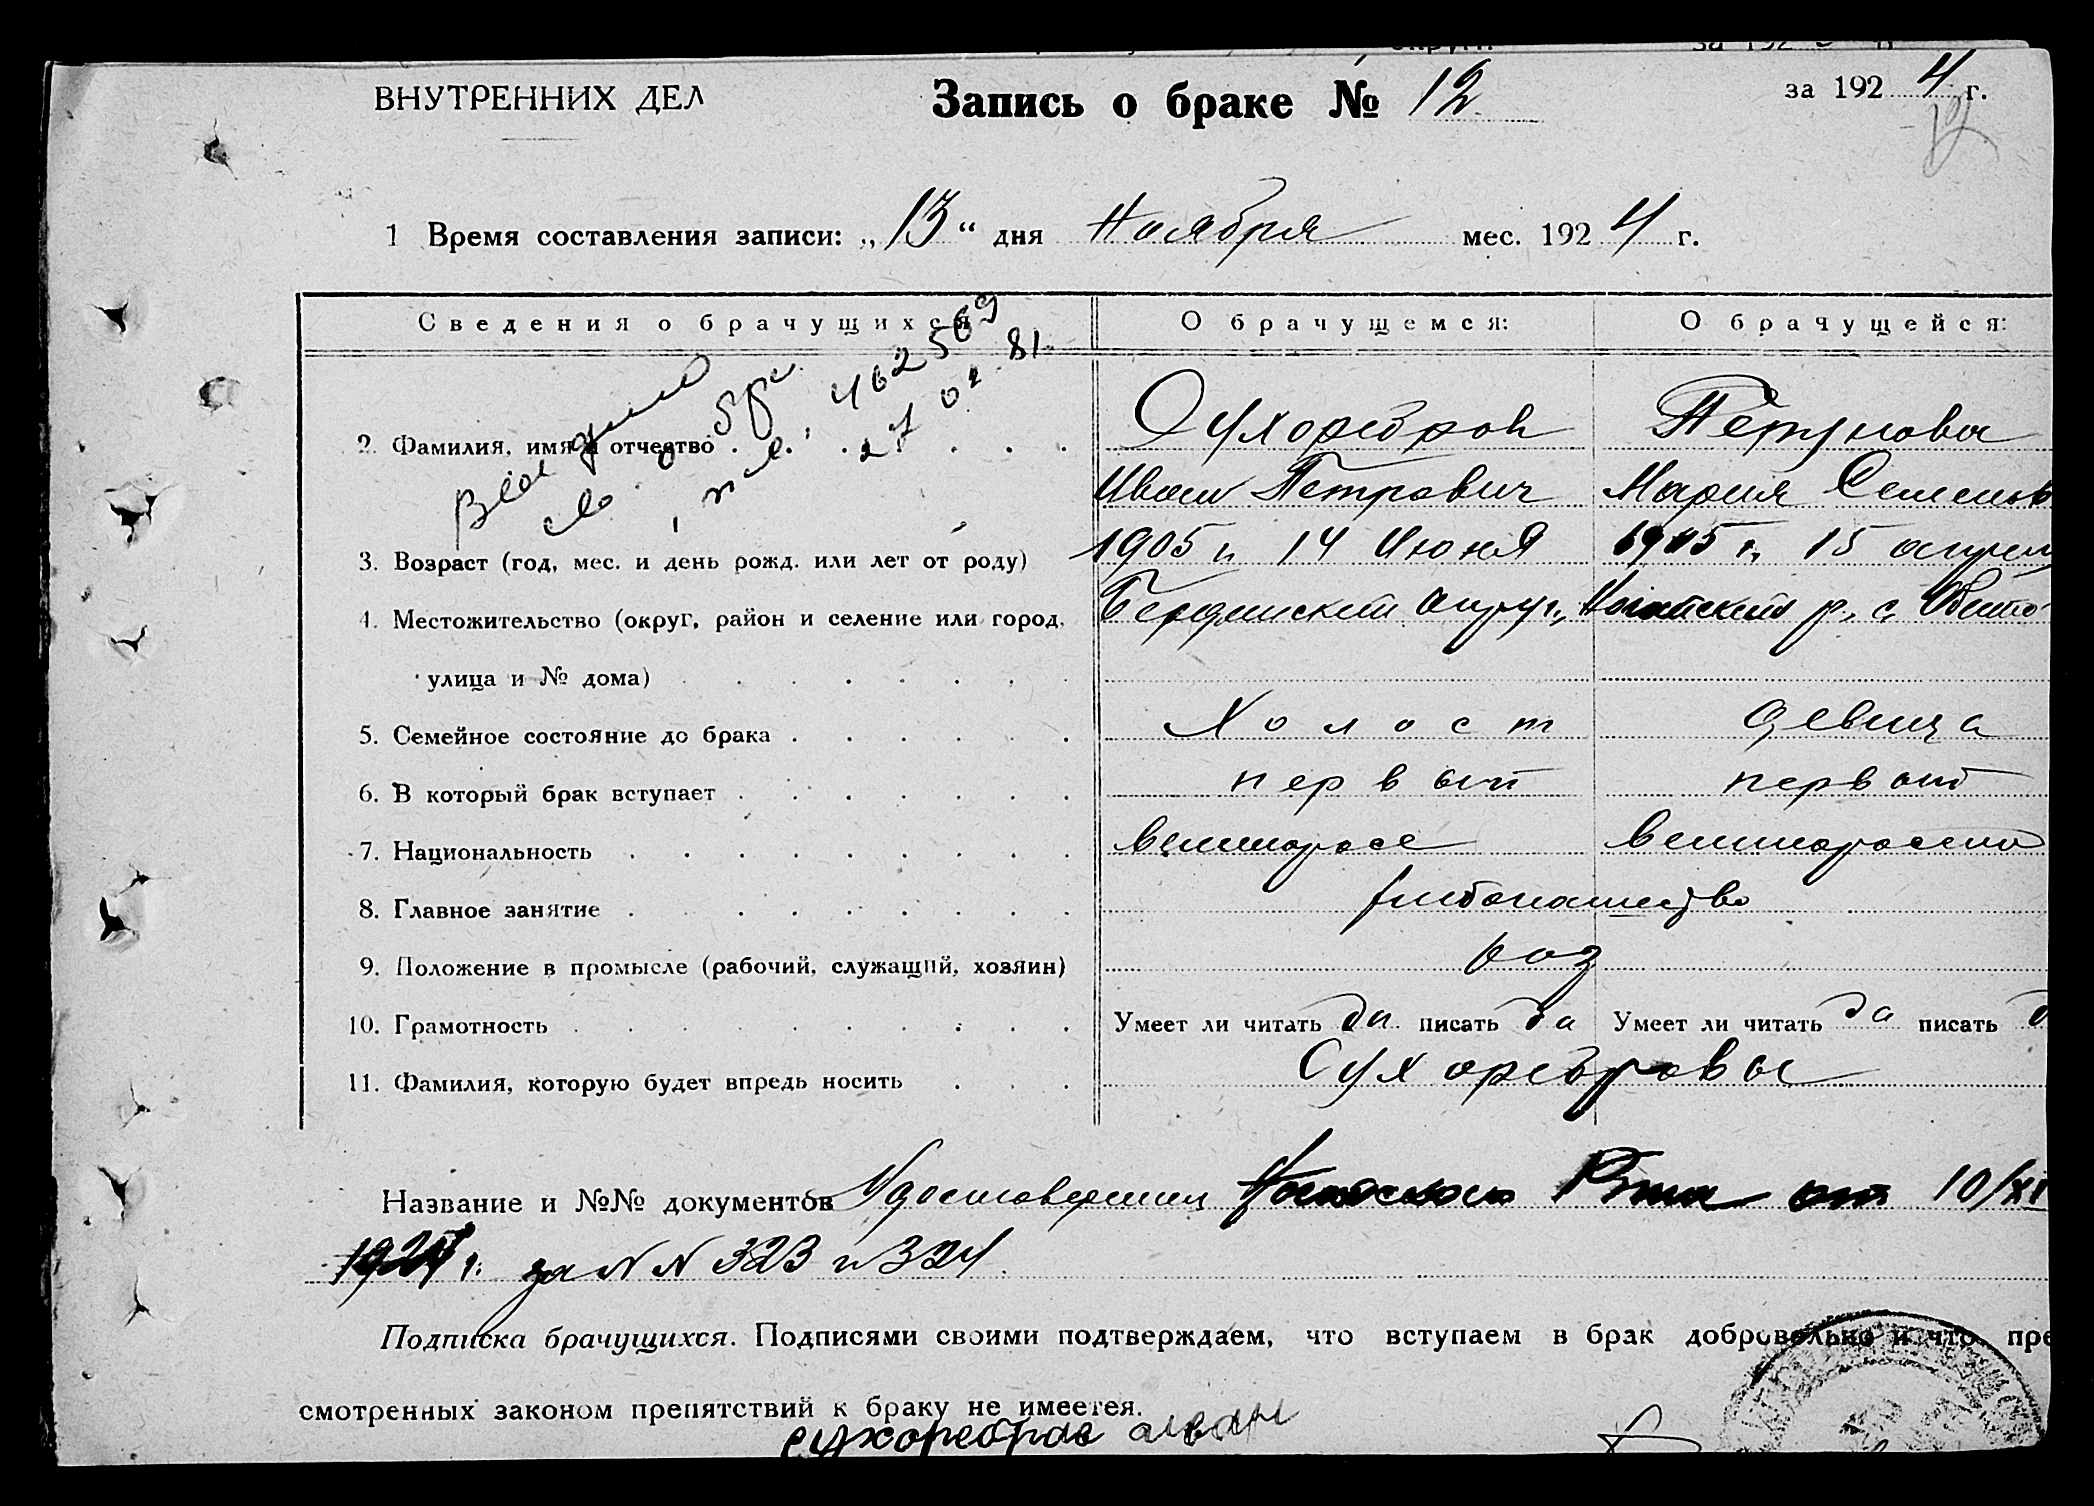 ВНУТРЕННИХ ДЕЛ
Запись о браке № 12
за 1924 г.
12
1 Время составления записи: „13“ дня Ноября мес. 1924 г.
Сведения о брачущихся О брачущемся: О брачущейся:
Выдано
св. о бр.
462569
27 04 81
2. Фамилия, имя и отчество Сухоребров Перунова
Иван Петрович Мария Семенов
3. Возраст (год, мес. и день рожд. или лет от роду) 1905 г. 14 Июня 1905 г. 15 апреля
4. Местожительство (округ, район и селение или город, Бердянский округ, Ногайский р., с.
улица и № дома)
5. Семейное состояние до брака Холост девица
6. В который брак вступает первый первый
7. Национальность великоросс
8. Главное занятие
9. Положение в промысле (рабочий, служащий, хозяин) хоз
10. Грамотность Умеет ли читать да писать да Умеет ли читать да писать д
11. Фамилия, которую будет впредь носить Сухоребровы
Название и №№ документов Удостоверения от 10/XI
1924 г. за NN 323 и 324.
Подписка брачущихся. Подписями своими подтверждаем, что вступаем в брак добровольно и что пре
смотренных законом препятствий к браку не имеется.
сухоребров иван